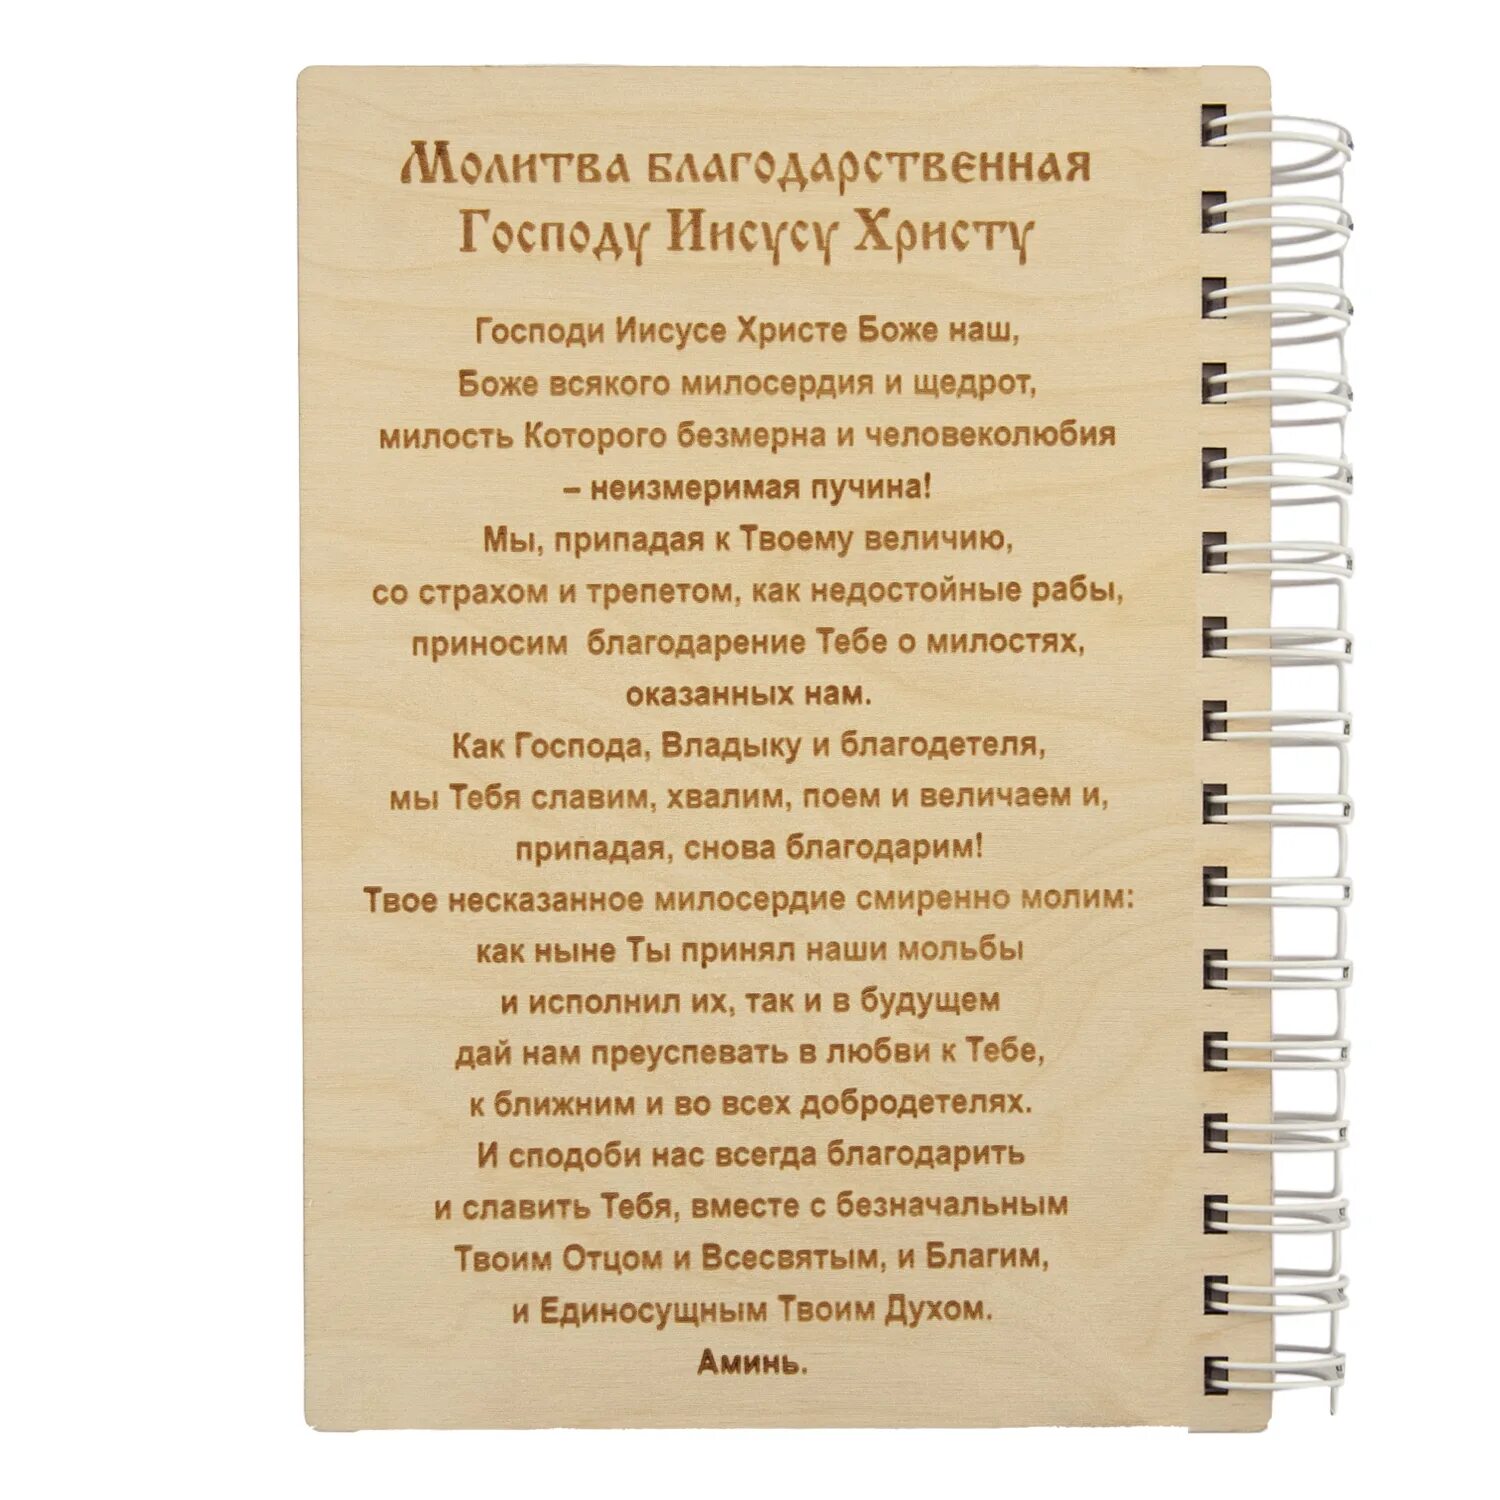 Молитва благодарственная
Господу Иисусу Христу
Господи Иисусе Христе Боже наш,
Боже всякого милосердия и щедрот,
милость Которого безмерна и человеколюбия
– неизмеримая пучина!
Мы, припадая к Твоему величию,
со страхом и трепетом, как недостойные рабы,
приносим благодарение Тебе о милостях,
оказанных нам.
Как Господа, Владыку и благодетеля,
мы Тебя славим, хвалим, поем и величаем и,
припадая, снова благодарим!
Твое несказанное милосердие смиренно молим:
как ныне Ты принял наши мольбы
и исполнил их, так и в будущем
дай нам преуспевать в любви к Тебе,
к ближним и во всех добродетелях.
И сподоби нас всегда благодарить
и славить Тебя, вместе с безначальным
Твоим Отцом и Всесвятым, и Благим,
и Единосущным Твоим Духом.
Аминь.